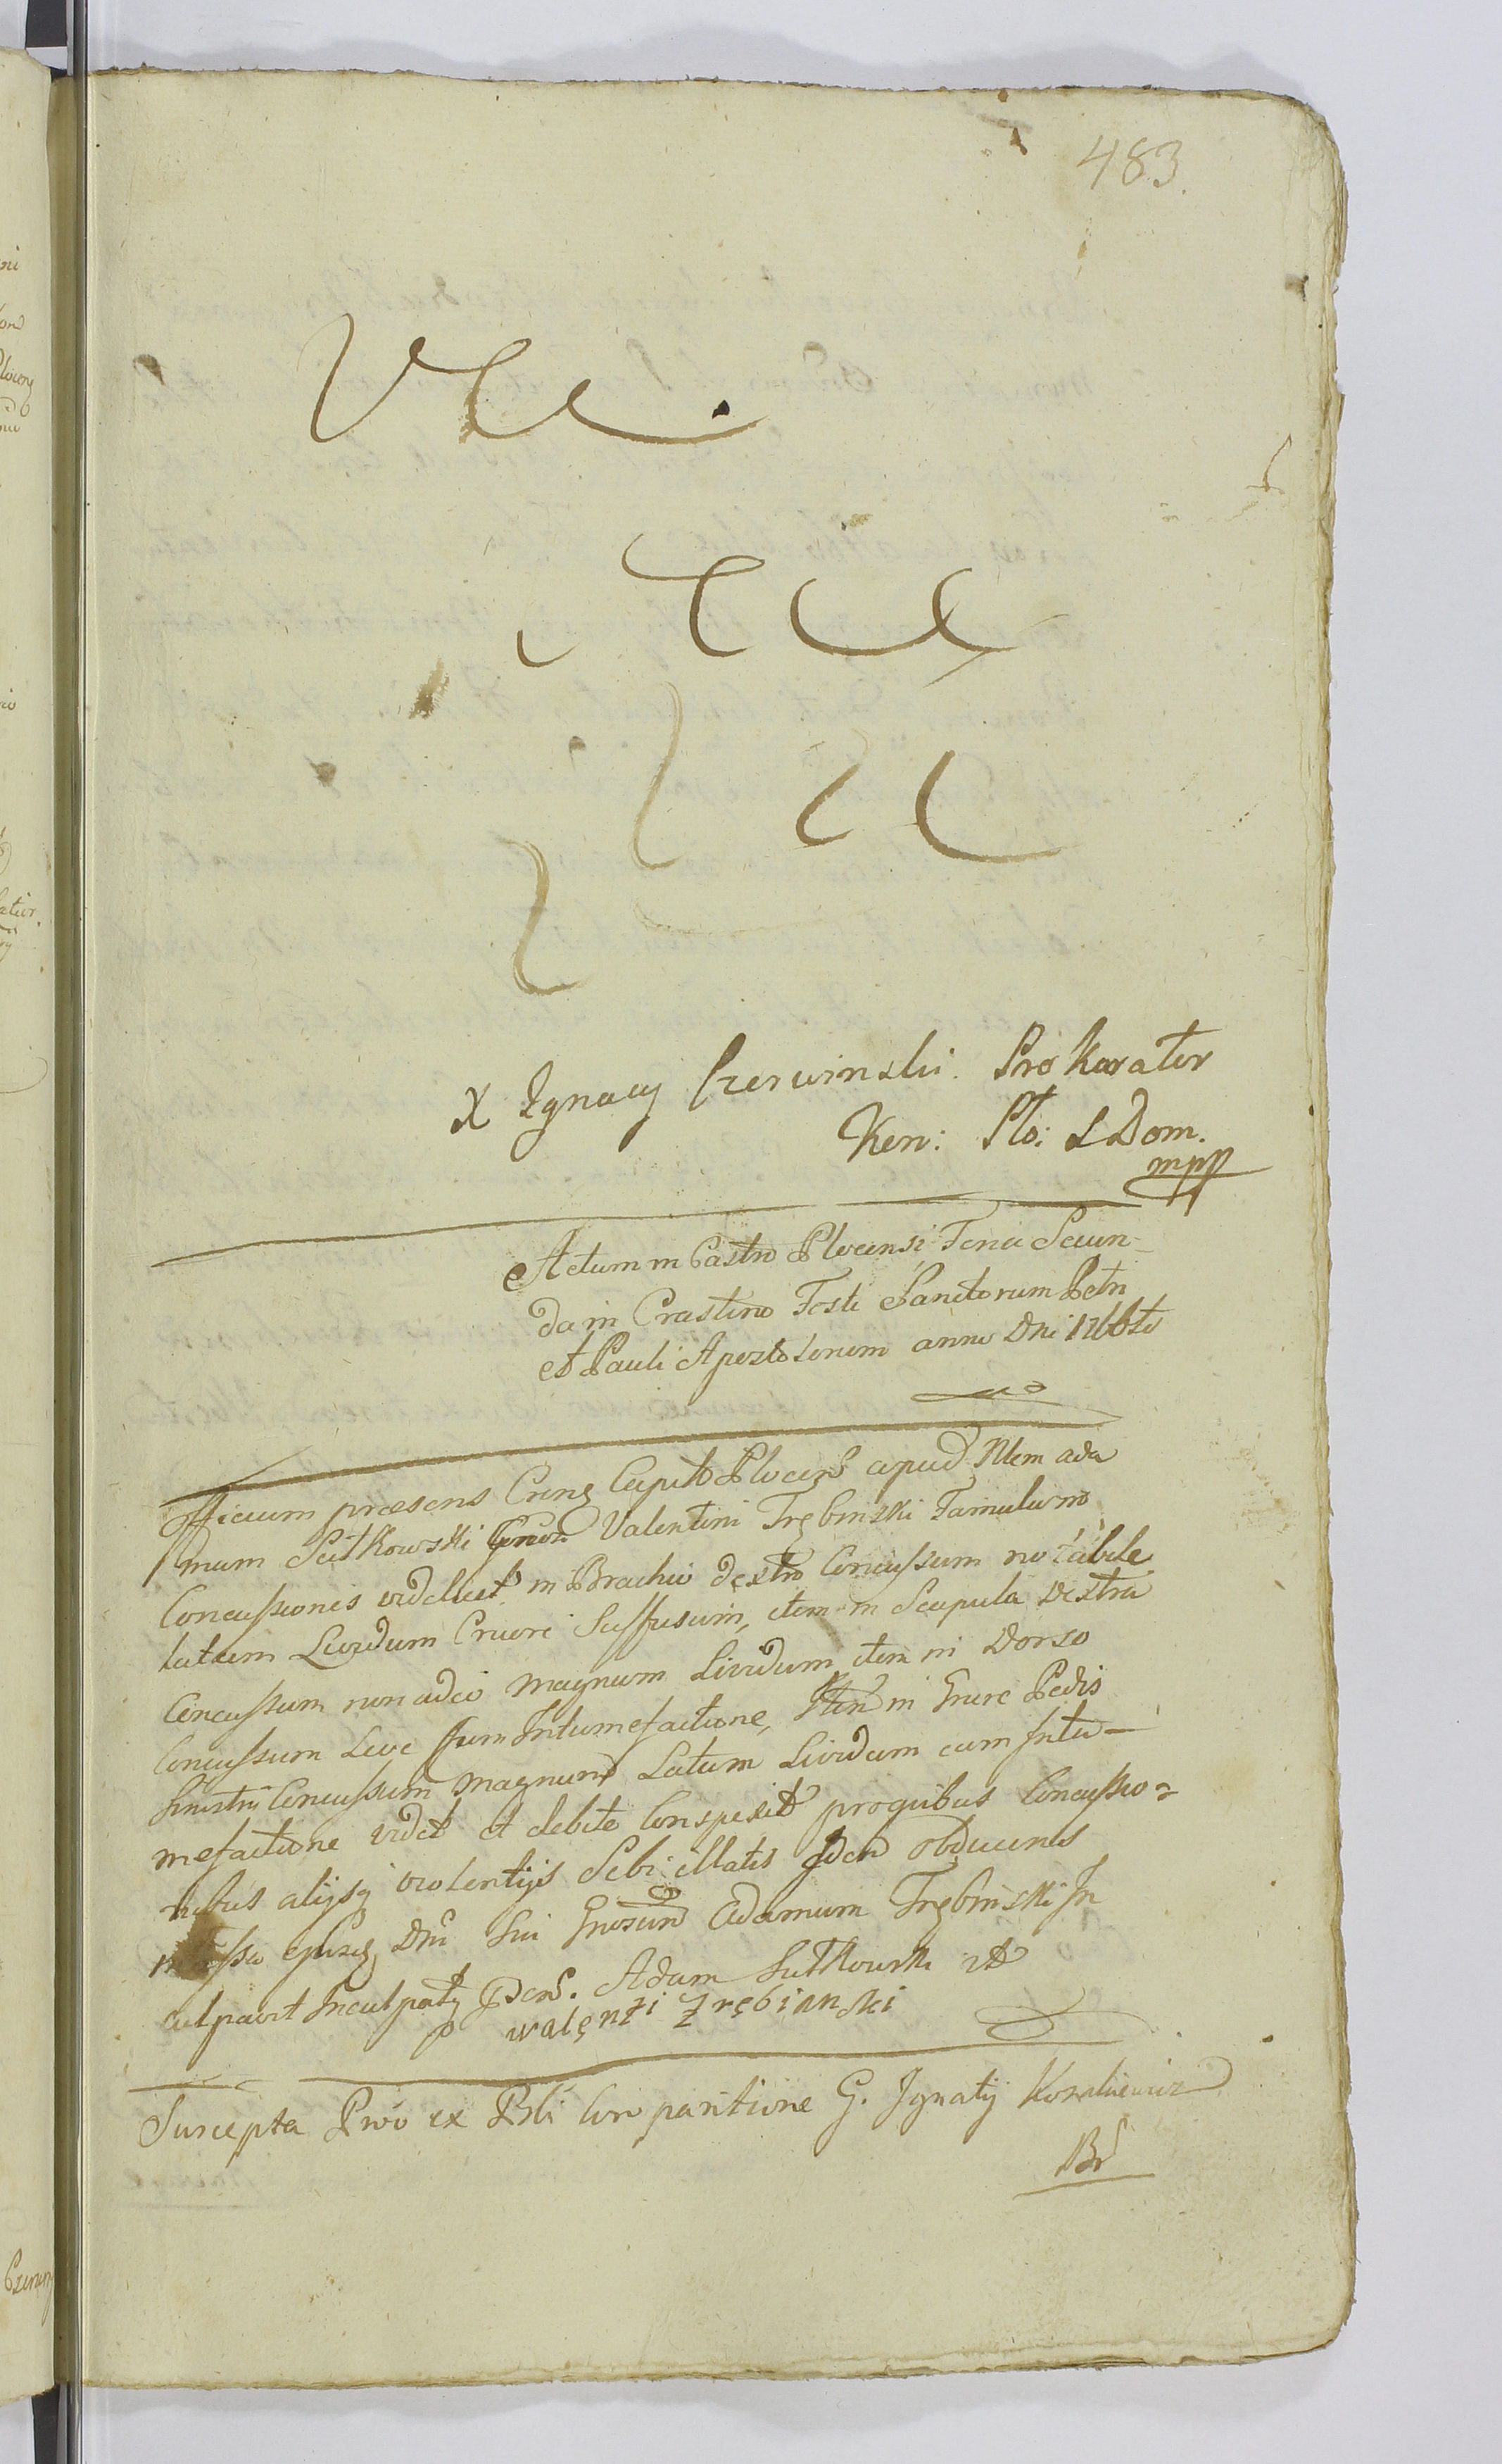 483.
X Ignacy Czerwinski. Prokurator
Kon: Plo: S Dom.
mpp
Actum in Castro Plocensi Feria Secun-
da in Crastino Festi Sanctorum Petri
et Pauli Apostolorum anno Dni 1766to
Officium præsens Cren Capit Plocens apud Nlem Ada
mum Sutkowski Gnosi Valentini Trębinski Famulum
Concussiones videlicet in Brachio dextro Concussum notabile
latum Lividum Cruore Suffusum, item in Scapula Dextra
Concussum non adeo magnum Lividum, item in Dorso
Concussum Leve cum Intumefactione, Item in Crure Pedis
Sinistri Concussum magnum Latum Lividum cum Intu-
mefactione vidit et debite Conspexit pro quibus Concussio-
nibus alijsq violentijs Sibi illatis Idem obducens
ejusq Dni Sui Gnosum Adamum Trębinski In
culpavit Inculpatq Pens. Adam Sutkowski
walęnti Zrębianski
Suscepta Pro ex Pbli Comparitione G. Ignatij Kozakiewicz
Br